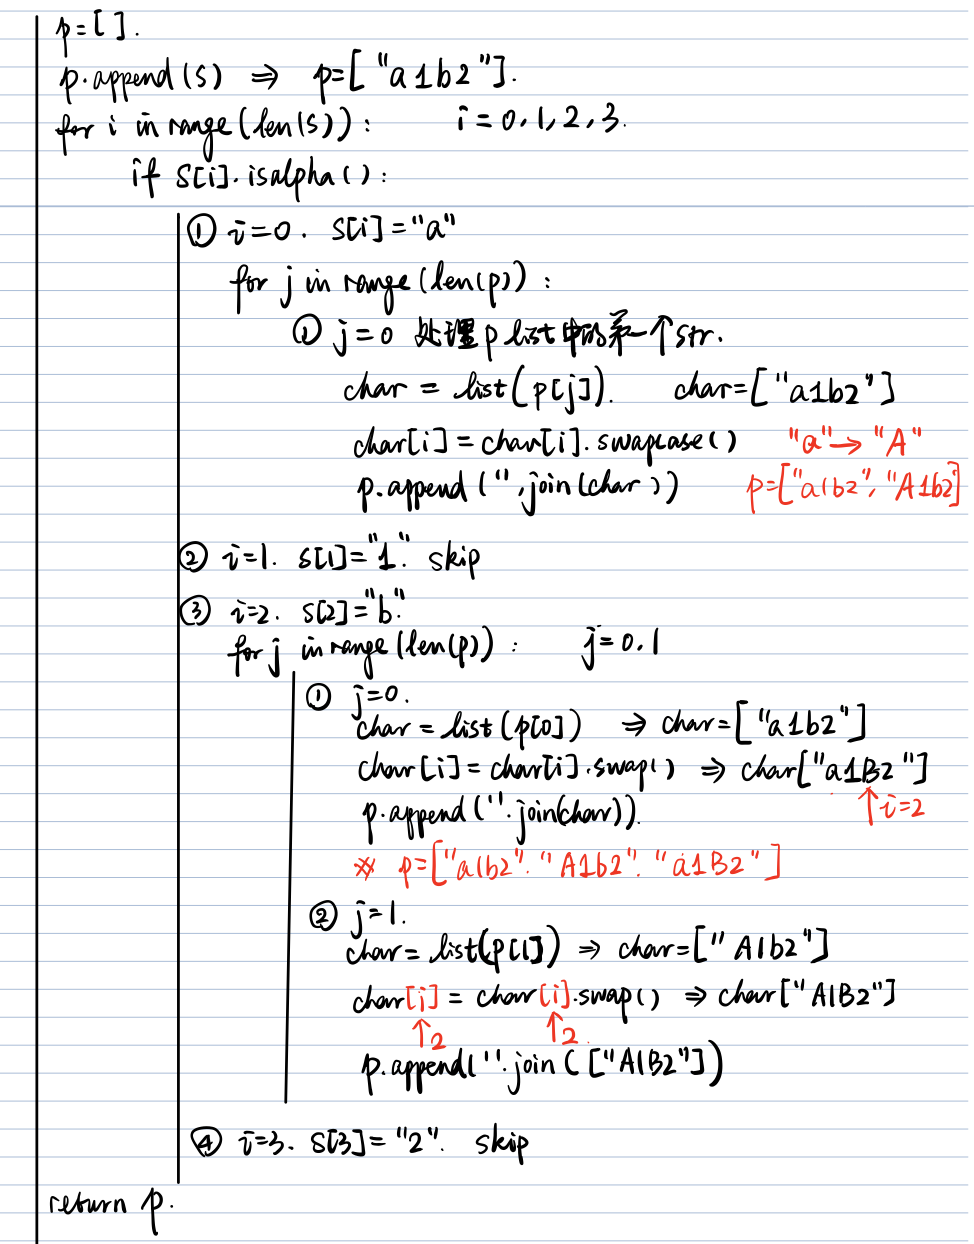 p=[].
p.append(s) ⇒ p=["a1b2"].
for i in range(len(s)): i=0,1,2,3.
if s[i].isalpha():
① i=0. s[i]="a"
for j in range(len(p)):
① j=0 处理p list中的第一个str.
char = list(p[j]). char=["a1b2"]
char[i]=char[i].swapcase() "a"→"A"
p.append(''.join(char)) p=["a1b2","A1b2]
② i=1. s[1]="1". skip
③ i=2. s[2]="b".
for j in range(len(p)): j=0,1
① j=0.
char=list(p[0]) ⇒ char=["a1b2"]
char[i]=char[i].swap() ⇒ char["a1B2"]
p.append(''.join(char)). ↑i=2
※ p=["a1b2"."A1b2"."a1B2"]
② j=1.
char=list(p[1]) ⇒ char=["A1b2"]
char[i]=char[i].swap() ⇒ char["A1B2"]
↑2 ↑2
p.append(''.join(["A1B2"])
④ i=3. s[3]="2". skip
return p.